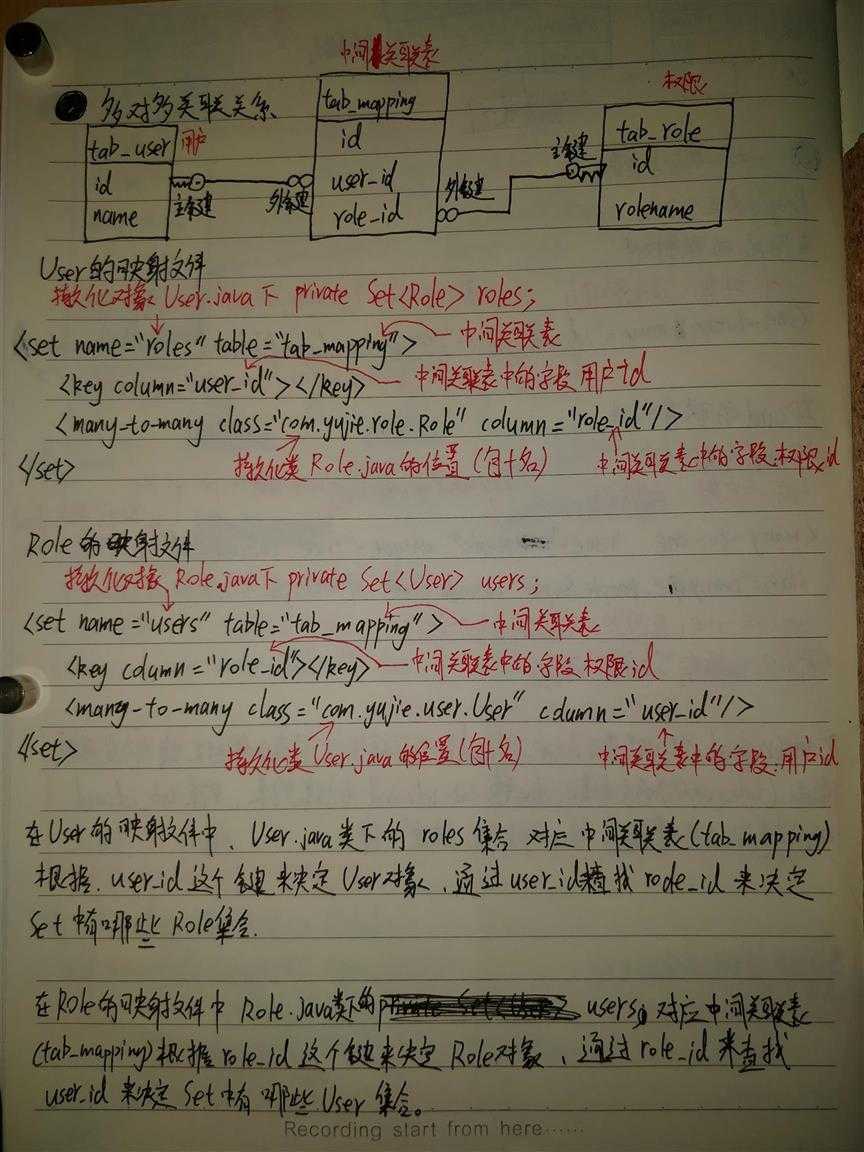 中间关联表
多对多关联关系
权限
tab_user 用户
id
name
主键
外键
tab_mapping
id
user_id
role_id
外键
主键
tab_role
id
rolename
User的映射文件
持久化对象 User.java下 private Set<Role> roles;
<set name="roles" table="tab_mapping"> 中间关联表
<key column="user_id"></key> 中间关联表中的字段 用户id
<many-to-many class="com.yujie.role.Role" column="role_id"/>
</set> 持久化类 Role.java的位置(包+名) 中间关联表中的字段:权限id
Role的映射文件
持久化对象 Role.java下 private Set<User> users;
<set name="users" table="tab_mapping"> 中间关联表
<key column="role_id"></key> 中间关联表中的字段 权限id
<many-to-many class="com.yujie.user.User" column="user_id"/>
</set> 持久化类 User.java的位置(包+名) 中间关联表中的字段:用户id
在User的映射文件中、User.java类下的 roles 集合 对应中间关联表(tab_mapping)
根据 user_id 这个键来决定User对象、通过user_id查找 rode_id 来决定
Set 中有哪些 Role集合.
在Role的映射文件中 Role.java类下的 private Set<User> users 对应中间关联表
(tab_mapping)根据 role_id 这个键来决定 Role对象、通过 role_id 来查找
user_id 来决定 Set中有哪些 User 集合。
Recording start from here······